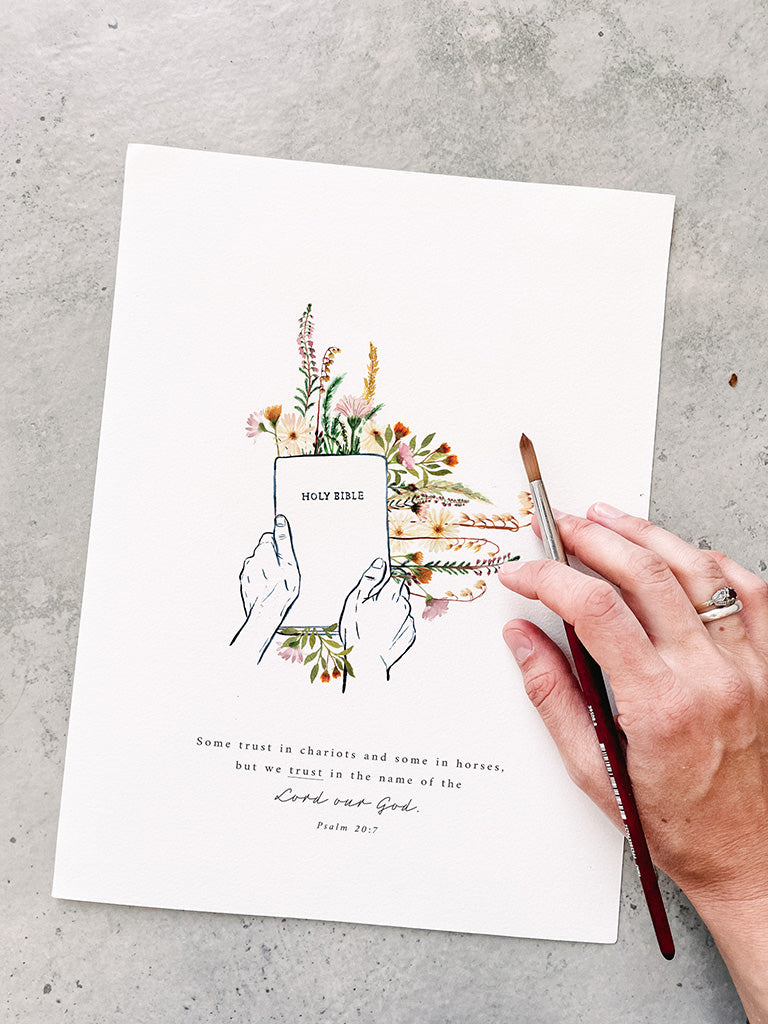 HOLY BIBLE
Some trust in chariots and some in horses,
but we trust in the name of the
Lord our God.
Psalm 20:7